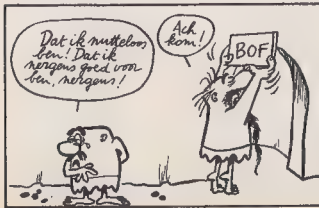 Dat ik nutteloos
ben! Dat ik
nergens goed voor
ben, nergens!
Ach
kom!
BOF